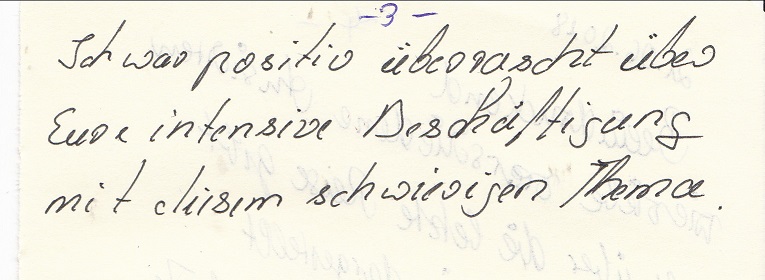 -3-
Ich war positiv überrascht über
Eure intensive Beschäftigung
mit diesem schwierigen Thema.